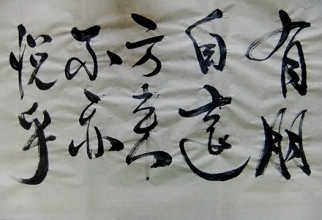 有朋
自遠
方来
不亦
悦乎